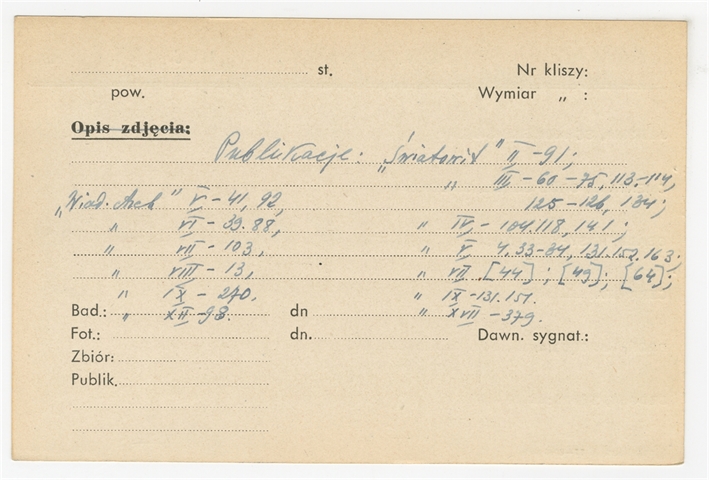 st. Nr kliszy:
pow. Wymiar „ :
Opis zdjęcia:
Publikacje: „Światowit" II - 91;
„ III - 60 - 75, 113 - 114,
„Wiad. Arch" V - 41, 92, 125 - 126, 134;
„ VI - 39. 88, „ IV - 104. 118, 141;
„ VII - 103, „ V 4. 33 - 34, 131. 152. 163;
„ VIII - 13, „ VII [44]; [49]; [64];
„ IX - 270. „ IX - 131. 151.
Bad.: „ XII - 98. dn „ XVII - 379.
Fot.: dn. Dawn. sygnat.:
Zbiór:
Publik.